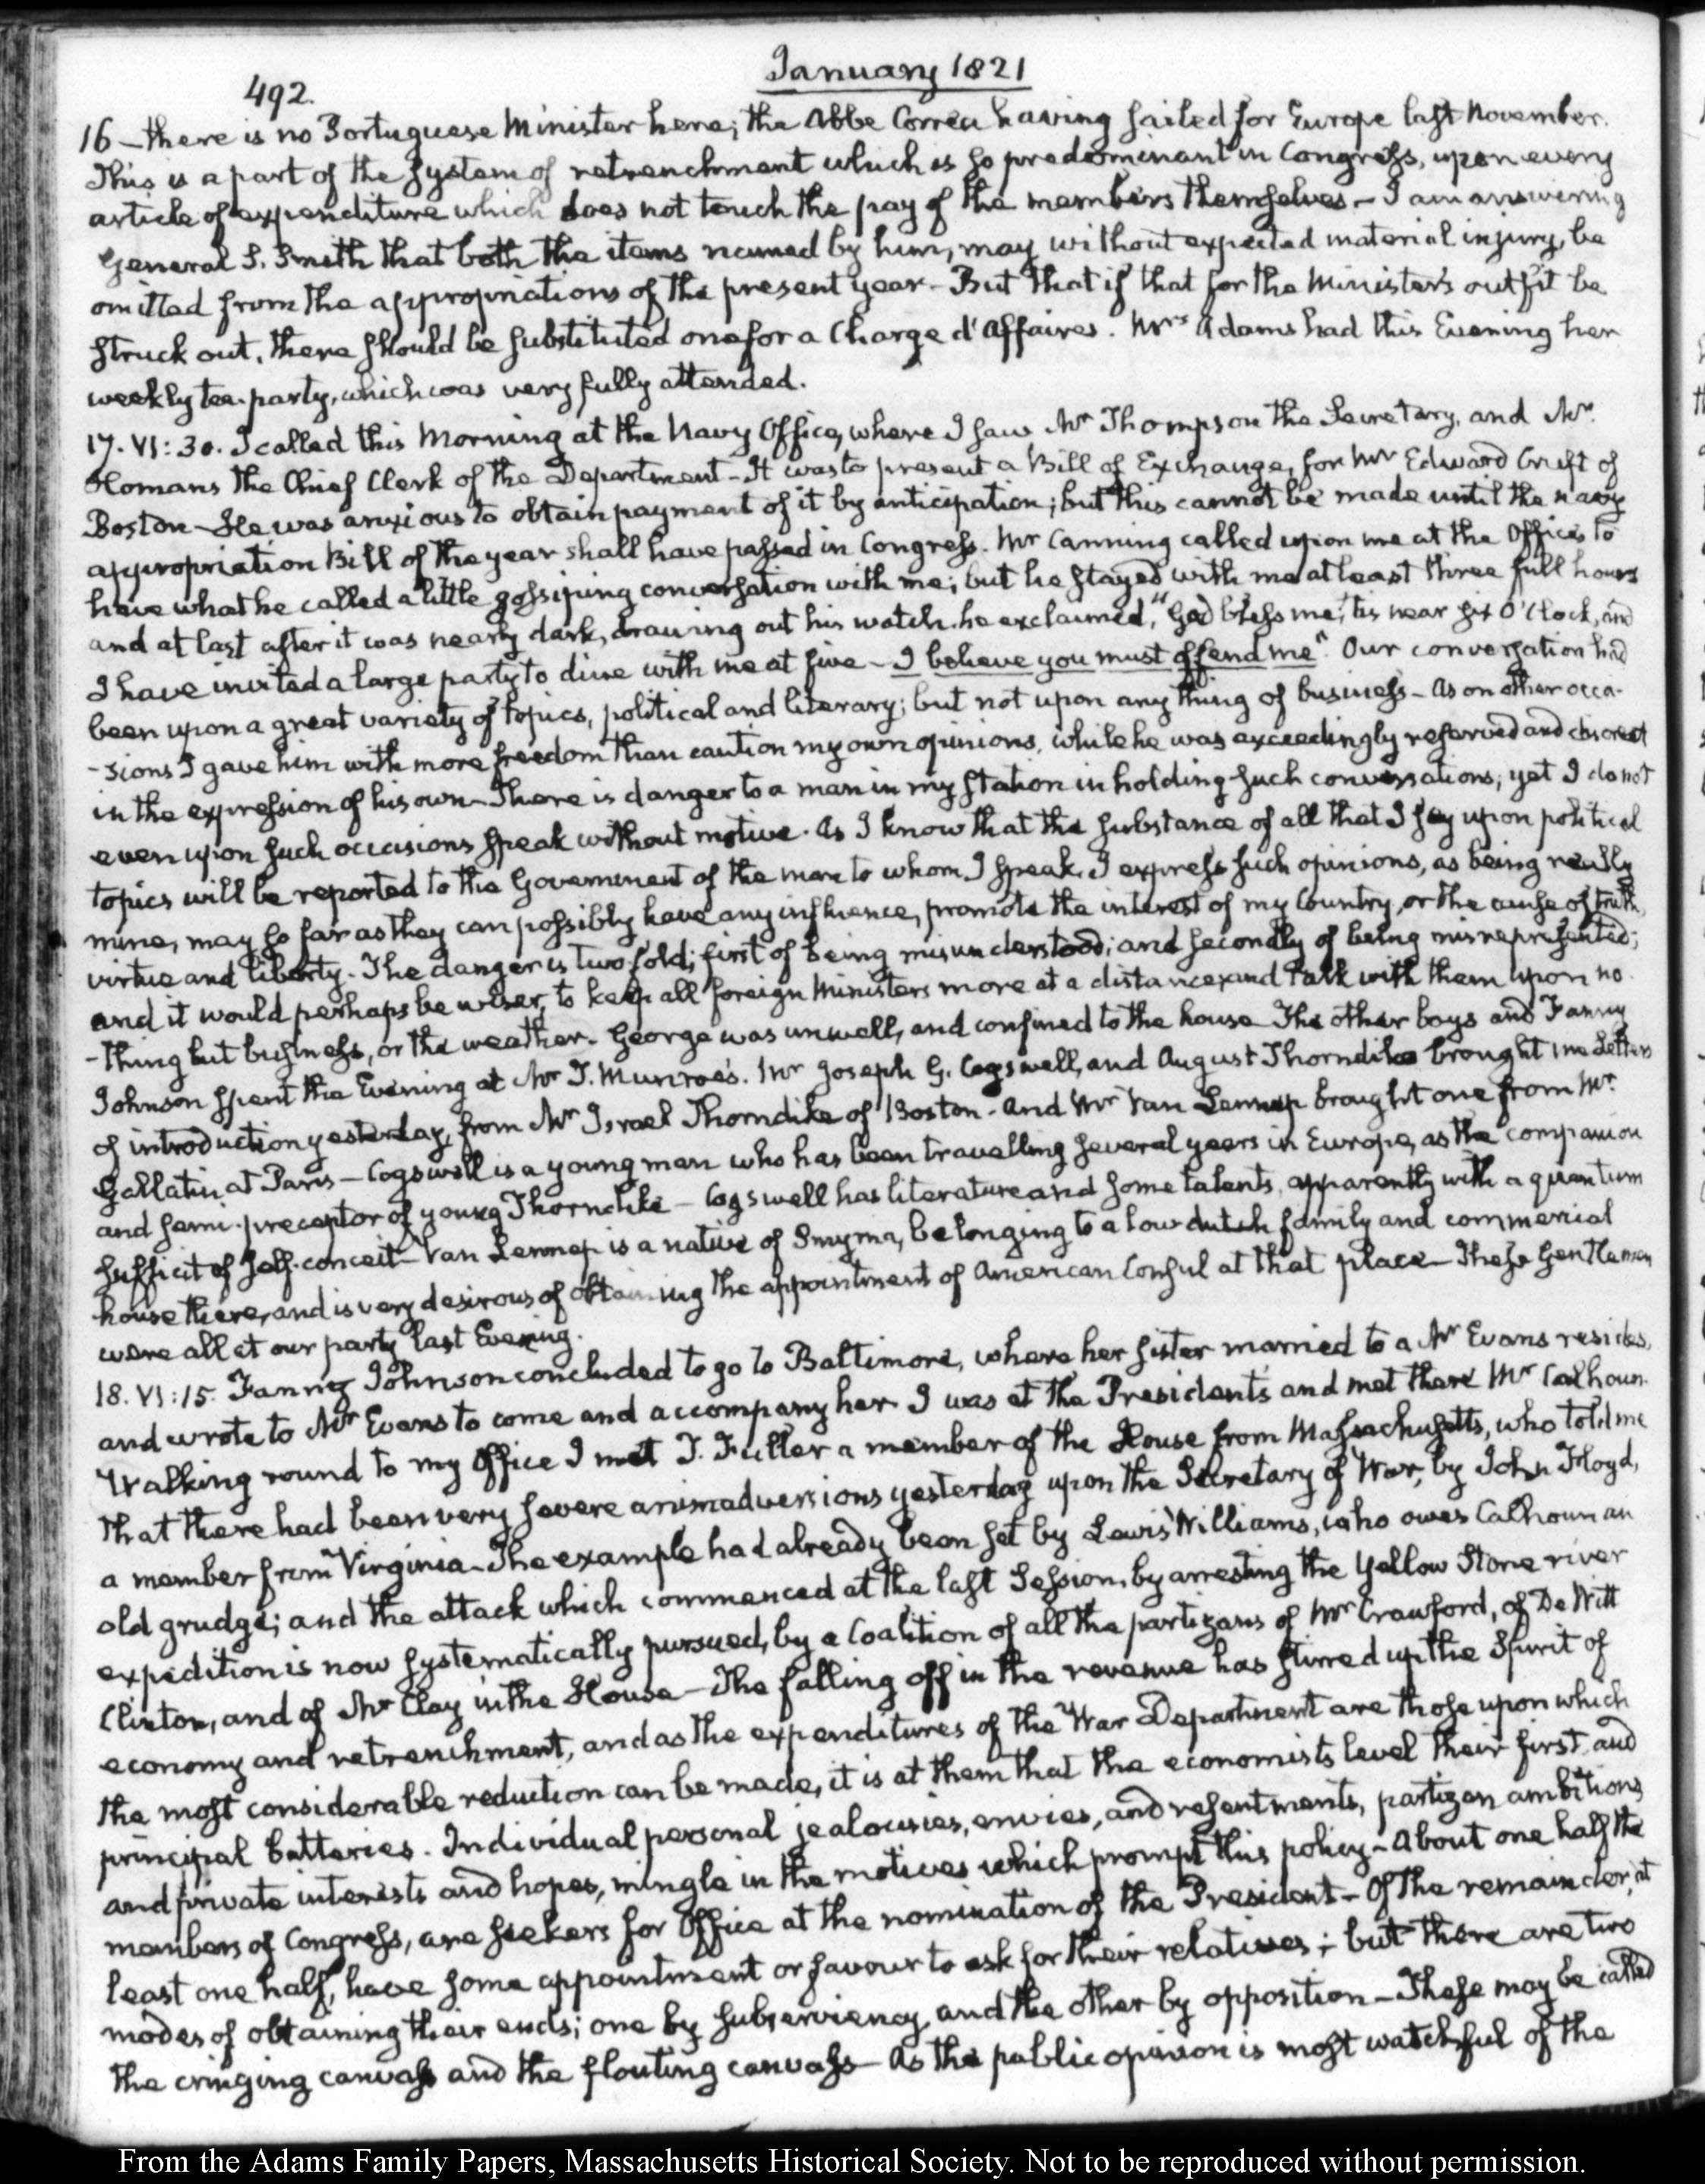 January 1821
492.
16 — there is no Portuguese Minister here; the Abbe Correa having sailed for Europe last November.
This is a part of the system of retrenchment which is so predominant in Congress, upon every
article of expenditure which does not touch the pay of the members themselves — I am answering
General S. Smith that both the items named by him, may without expected material injury, be
omitted from the appropriations of the present year — But that if that for the Minister's outfit be
struck out, there should be substituted one for a Charge d'Affaires. Mrs Adams had this Evening her
weekly tea-party, which was very fully attended.
17. VI:30. I called this Morning at the Navy Office, where I saw Mr Thompson the Secretary, and Mr.
Homans the Chief Clerk of the Department — It was to present a Bill of Exchange, for Mr Edward Cruft of
Boston — He was anxious to obtain payment of it by anticipation; but this cannot be made until the navy
appropriation Bill of the year shall have passed in Congress. Mr Canning called upon me at the Office, to
have what he called a little gossiping conversation with me; but he stayed with me at least three full hours
and at last after it was nearly dark, drawing out his watch, he exclaimed, "God bless me, 'tis near six O'Clock, and
I have invited a large party to dine with me at five — I believe you must offend me". Our conversation had
been upon a great variety of topics, political and literary; but not upon any thing of business — As on other occa-
-sions I gave him with more freedom than caution my own opinions, while he was exceedingly reserved and discreet
in the expression of his own — There is danger to a man in my station in holding such conversations; yet I do not
even upon such occasions speak without motive. As I know that the substance of all that I say upon political
topics will be reported to the Government of the man to whom I speak, I express such opinions, as being really
mine, may so far as they can possibly have any influence, promote the interest of my Country, or the cause of truth,
virtue and liberty. The danger is two-fold; first of being misunderstood; and secondly of being misrepresented;
and it would perhaps be wiser, to keep all foreign Ministers more at a distance, and talk with them upon no-
-thing but business, or the weather. George was unwell, and confined to the house — The other boys and Fanny
Johnson spent the Evening at Mr T. Munroe's. Mr Joseph G. Cogswell, and August Thorndike brought me Letters
of introduction yesterday, from Mr Israel Thorndike of Boston — And Mr Van Lennep brought one from Mr.
Gallatin at Paris — Cogswell is a young man who has been travelling several years in Europe, as the companion
and semi-preceptor of young Thorndike — Cogswell has literature and some talents, apparently with a quantum
sufficit of self-conceit — Van Lennep is a native of Smyrna, belonging to a low dutch family and commercial
house there, and is very desirous of obtaining the appointment of American Consul at that place — These Gentlemen
were all at our party last Evening.
18. VI:15. Fanny Johnson concluded to go to Baltimore, where her sister married to a Mr Evans resides,
and wrote to Mr Evans to come and accompany her. I was at the President's and met there Mr Calhoun.
Walking round to my Office I met T. Fuller a member of the House from Massachusetts, who told me
that there had been very severe animadversions yesterday upon the Secretary of War, by John Floyd,
a member from Virginia — The example had already been set by Lewis Williams, who owes Calhoun an
old grudge; and the attack which commenced at the last Session, by arresting the Yellow Stone river
expedition is now systematically pursued, by a Coalition of all the partizans of Mr Crawford, of De Witt
Clinton, and of Mr Clay in the House — The falling off in the revenue has stirred up the Spirit of
economy and retrenchment, and as the expenditures of the War Department are those upon which
the most considerable reduction can be made, it is at them that the economists level their first and
principal batteries. Individual personal jealousies, envies, and resentments, partizan ambitions
and private interests and hopes, mingle in the motives which prompt this policy — About one half the
members of Congress, are seekers for Office at the nomination of the President — Of the remainder, at
least one half, have some appointment or favour to ask for their relatives; but there are two
modes of obtaining their ends; one by subserviency, and the other by opposition — These may be called
the cringing canvass and the flouting canvass — As the public opinion is most watchful of the
From the Adams Family Papers, Massachusetts Historical Society. Not to be reproduced without permission.